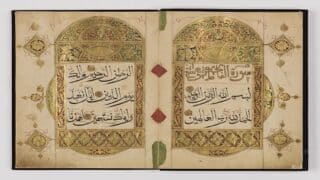 سورة
بسم الله الرحمن الرحيم
الحمد لله رب العالمين
الرحمن الرحيم ملك
يوم الدين اياك نعبد
واياك نستعين اهدنا